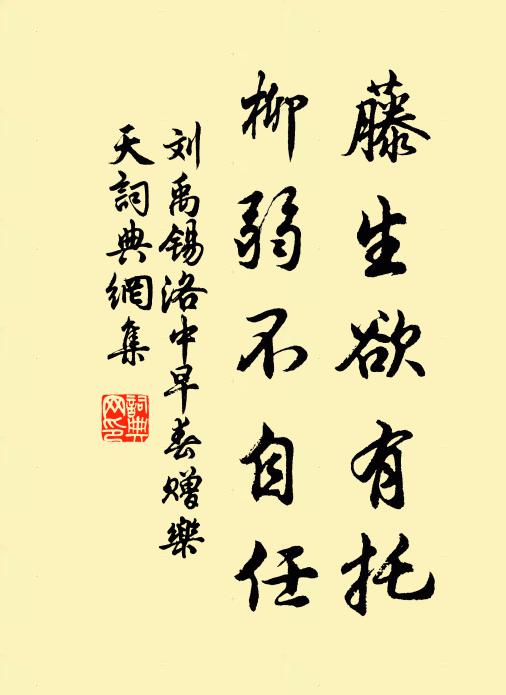 藤生欲有托
柳弱不自任
刘禹锡洛中早春赠樂
天詞典網集
詞典
网印